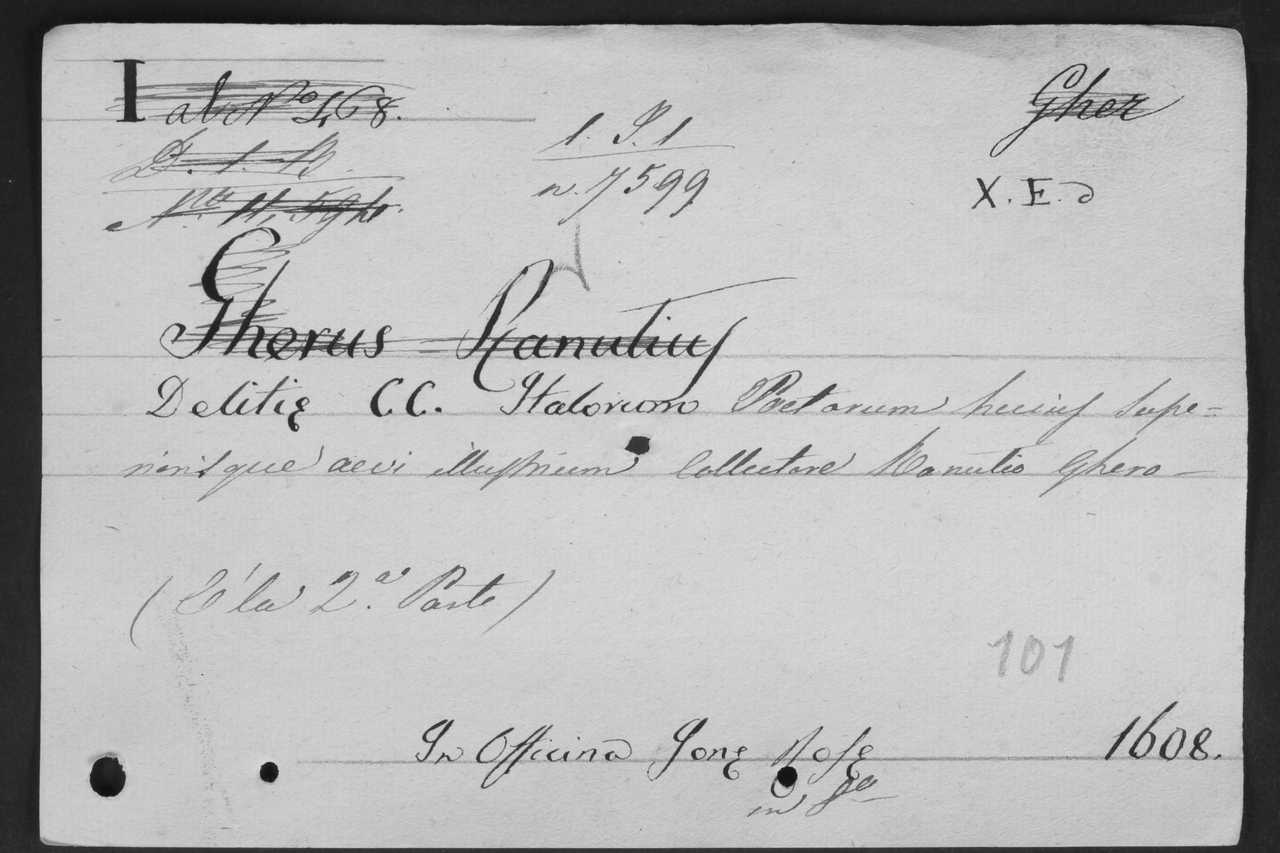 I ab N.º 468.
Gher
D. 1. B.
1. I. 1
n. 7599
X. E. d
Gherus Ranutius
Delitię C.C. Italorum Poetarum huius supe=
riorisque aevi illustrium Collectore Ranutio Ghero
(È la 2.ª Parte)
101
In Officina Jonę Rosę 1608.
in 8º